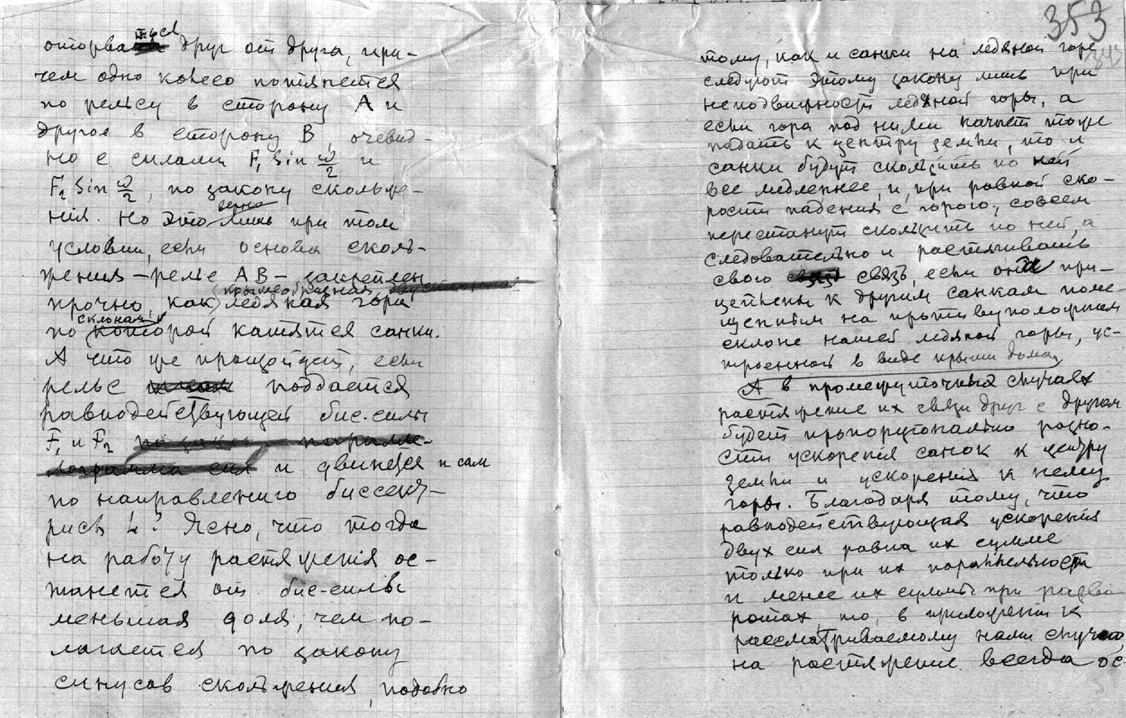 оторваться друг от друга, при-
чем одно колесо потянется
по рельсу в сторону А и
другое в сторону В, очевид-
но с силами F₁ Sin ω/2 и
F₂ Sin ω/2, по закону скольже-
ния. Но это верно лишь при том
условии, если основа сколь-
жения – рельс АВ – закреплен
прочно, как крышеобразная
ледяная гора,
по склонам которой катятся санки.
А что же произойдет, если
рельс поддается
равнодействующей бис-силы
F₁ и F₂
и движется и сам
по направлению биссект-
рисы L? Ясно, что тогда
на работу растяжения ос-
танется от бис-силы
меньшая доля, чем по-
лагается по закону
синусов скольжения, подобно
353
тому, как и санки на ледяной горе
следуют этому закону лишь при
неподвижности ледяной горы, а
если гора под ними начнет тоже
падать к центру земли, то и
санки будут скользить по ней
все медленнее, и, при равной ско-
рости падения с горою, совсем
перестанут скользить по ней, а
следовательно и растягивать
свою связь, если они при-
цеплены к другим санкам поме-
щенным на противуположном
склоне нашей ледяной горы, ус-
троенной в виде крыши дома.
А в промежуточных случаях
растяжение их связи друг с другом
будет пропорционально разно-
сти ускорения санок к центру
земли и ускорения к нему
горы. Благодаря тому, что
равнодействующая ускорения
двух сил равна их сумме
только при их параллельности
и менее их суммы при разво-
ротах, то, в приложении к
рассматриваемому нами случаю,
на растяжение всегда ос-